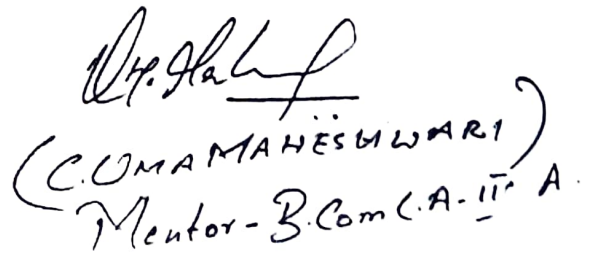 (C. UMAMAHESHWARI)
Mentor - B.Com C.A - II A.